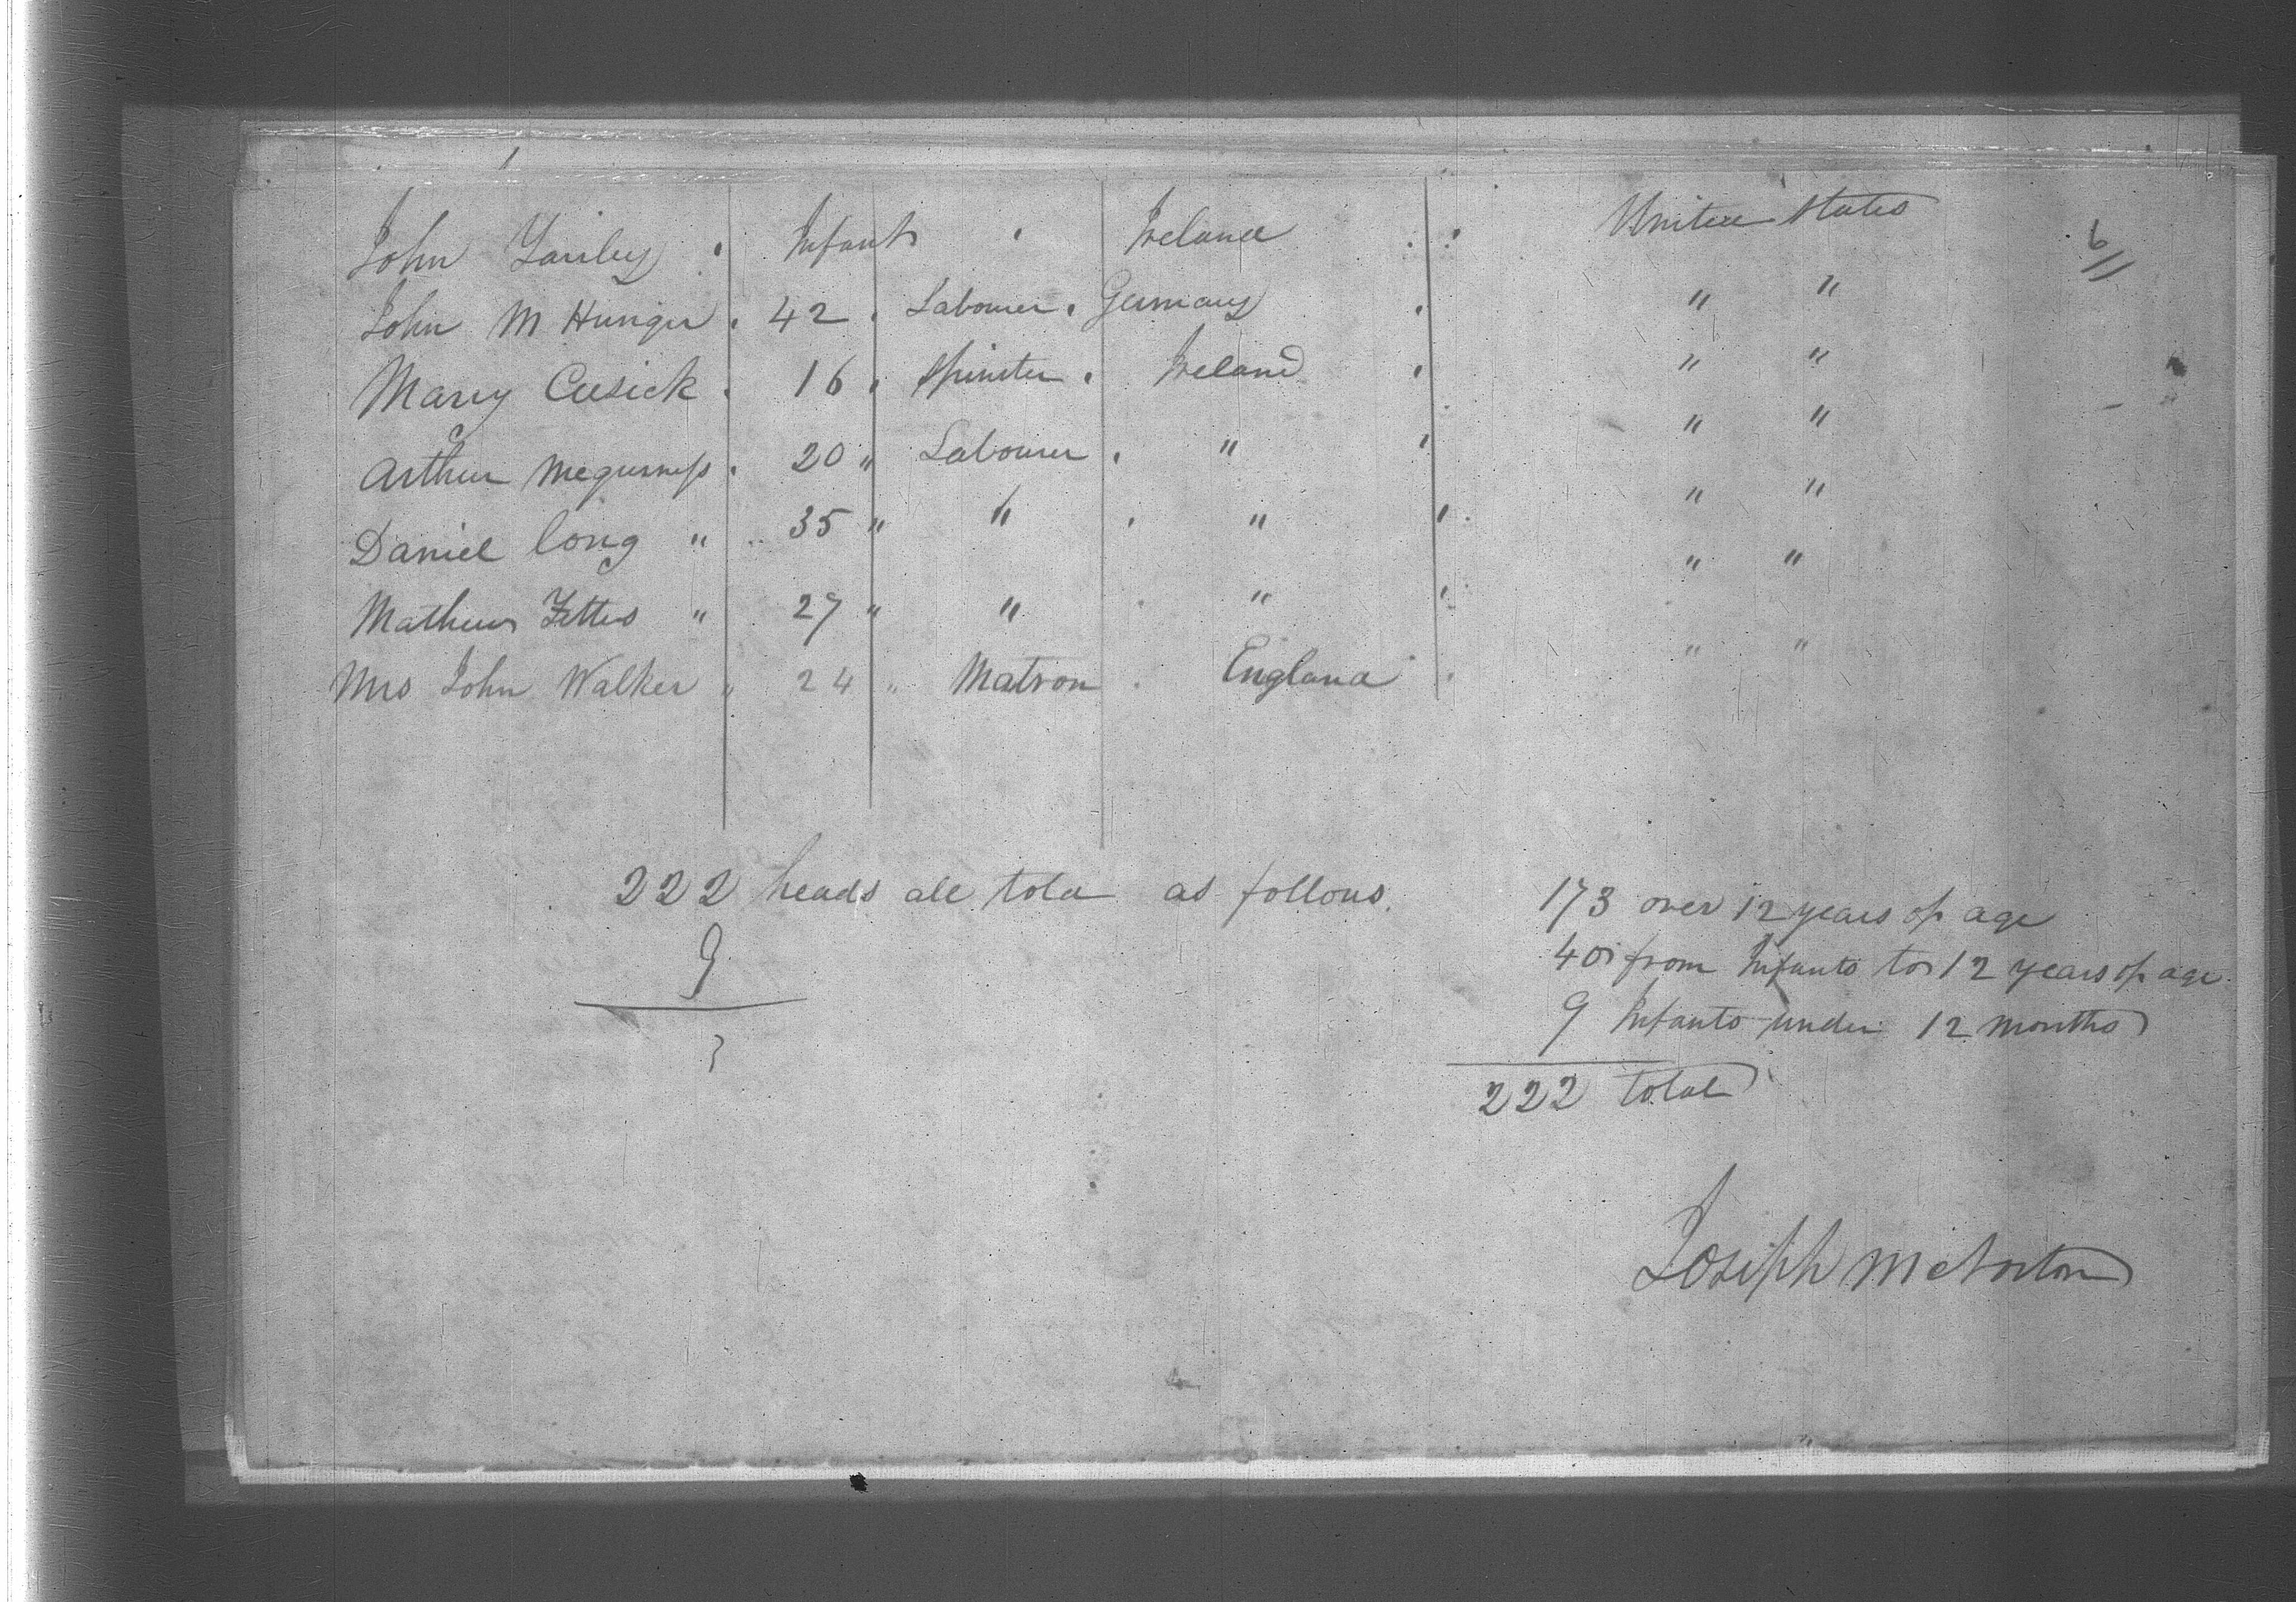 John " Infant " Ireland " United States
6
John M Hunger " 42 " Labourer " Germany " " "
Mary Cusick " 16 " Spinster " Ireland " " "
Arthur " 20 " Labourer " " " " "
Daniel Long " 35 " " " " " " "
Mathew " 27 " " " " " " "
Mrs John Walker " 24 " Matron " England " " "
222 heads all told as follows
9
173 over 12 years of age
40 from Infants to 12 years of age
9 Infants under 12 months
222 total
Joseph